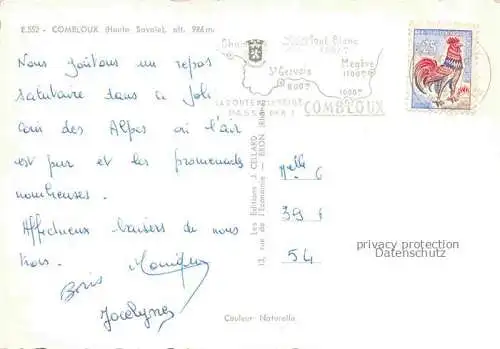 E.552 - COMBLOUX (Haute Savoie), alt. 986 m.
Nous goûtons un repos
salutaire dans ce joli
coin des Alpes où l'air
est pur et les promenades
nombreuses.
Affectueux baisers de nous
trois.
Monique
Boris
Jocelyne
Mont Blanc
St Gervais
Megève
1100m
800m
1000m
COMBLOUX
LA ROUTE BLANCHE
PASSE PAR
0,25
13, rue de l'Economie - BRON (Rhône)
Les Editions J. CELLARD
Melle G
39
54
privacy protection
Datenschutz
Couleur Naturelle